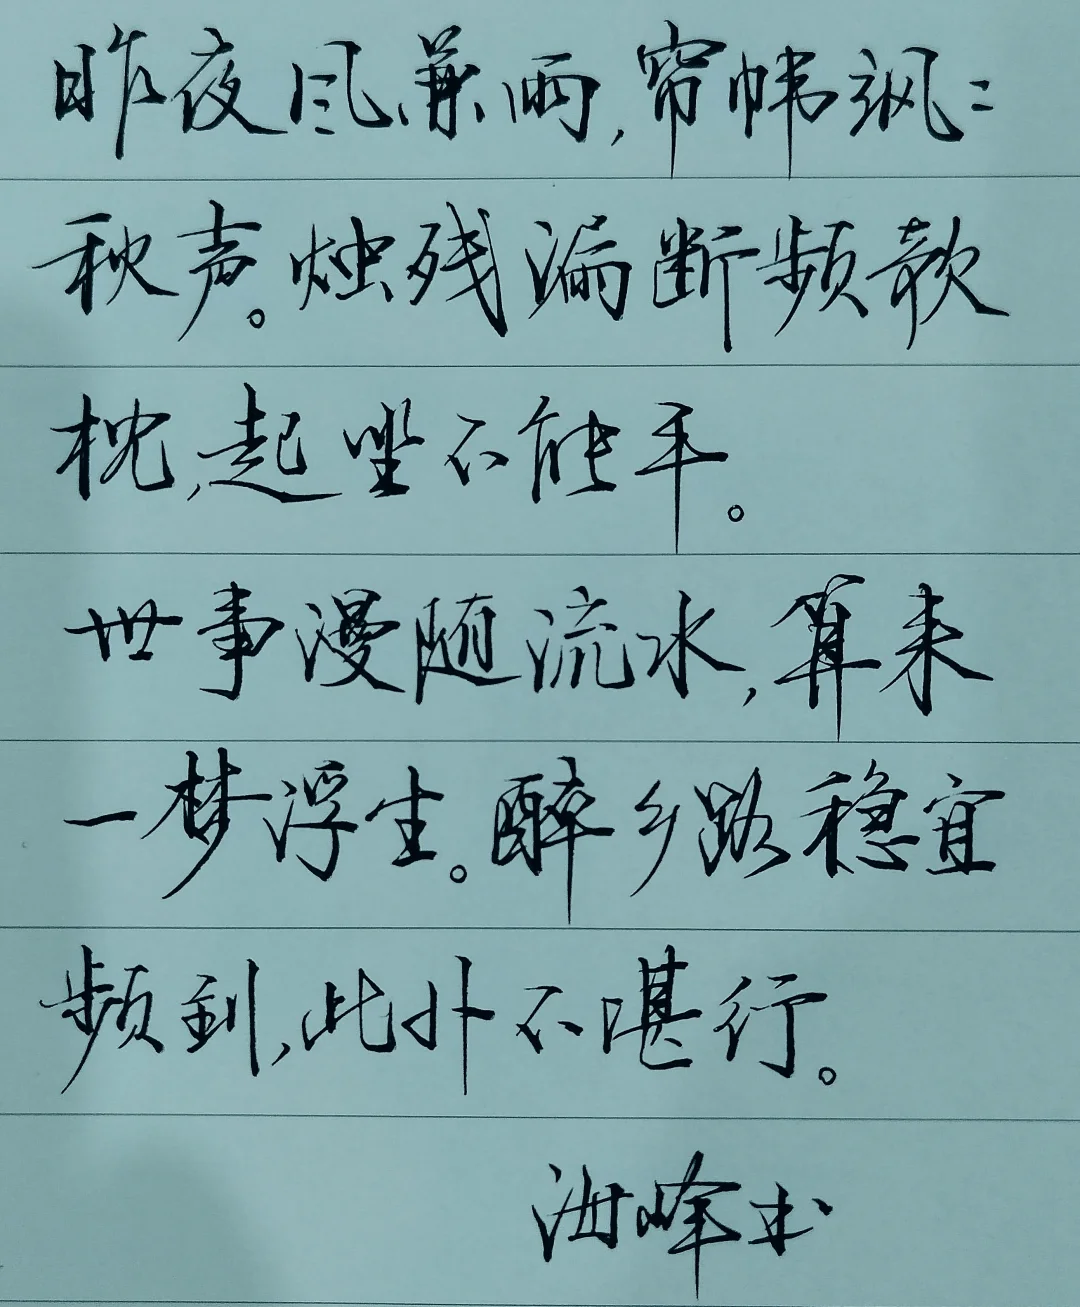 昨夜风兼雨,帘帏飒〻
秋声。烛残漏断频欹
枕,起坐不能平。
世事漫随流水,算来
一梦浮生。醉乡路稳宜
频到,此外不堪行。
海峰书